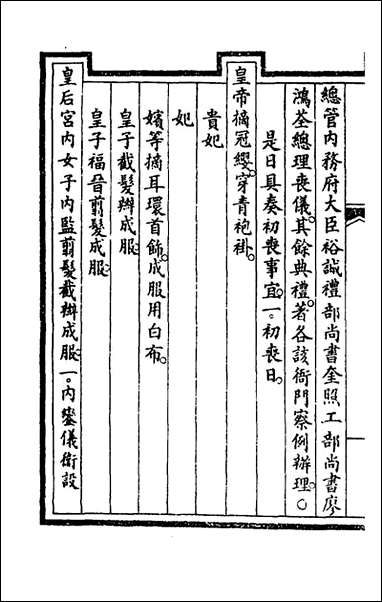 總管内務府大臣裕誠禮部尚書奎照工部尚書廖
鴻荃總理喪儀其餘典禮著各該衙門察例辦理○
是日具奏初喪事宜一初喪日
皇帝摘冠纓穿青袍褂
貴妃
妃
嬪等摘耳環首飾成服用白布
皇子截髮辮成服
皇子福晉翦髮成服
皇后宮内女子内監翦髮截辮成服一内鑾儀衛設